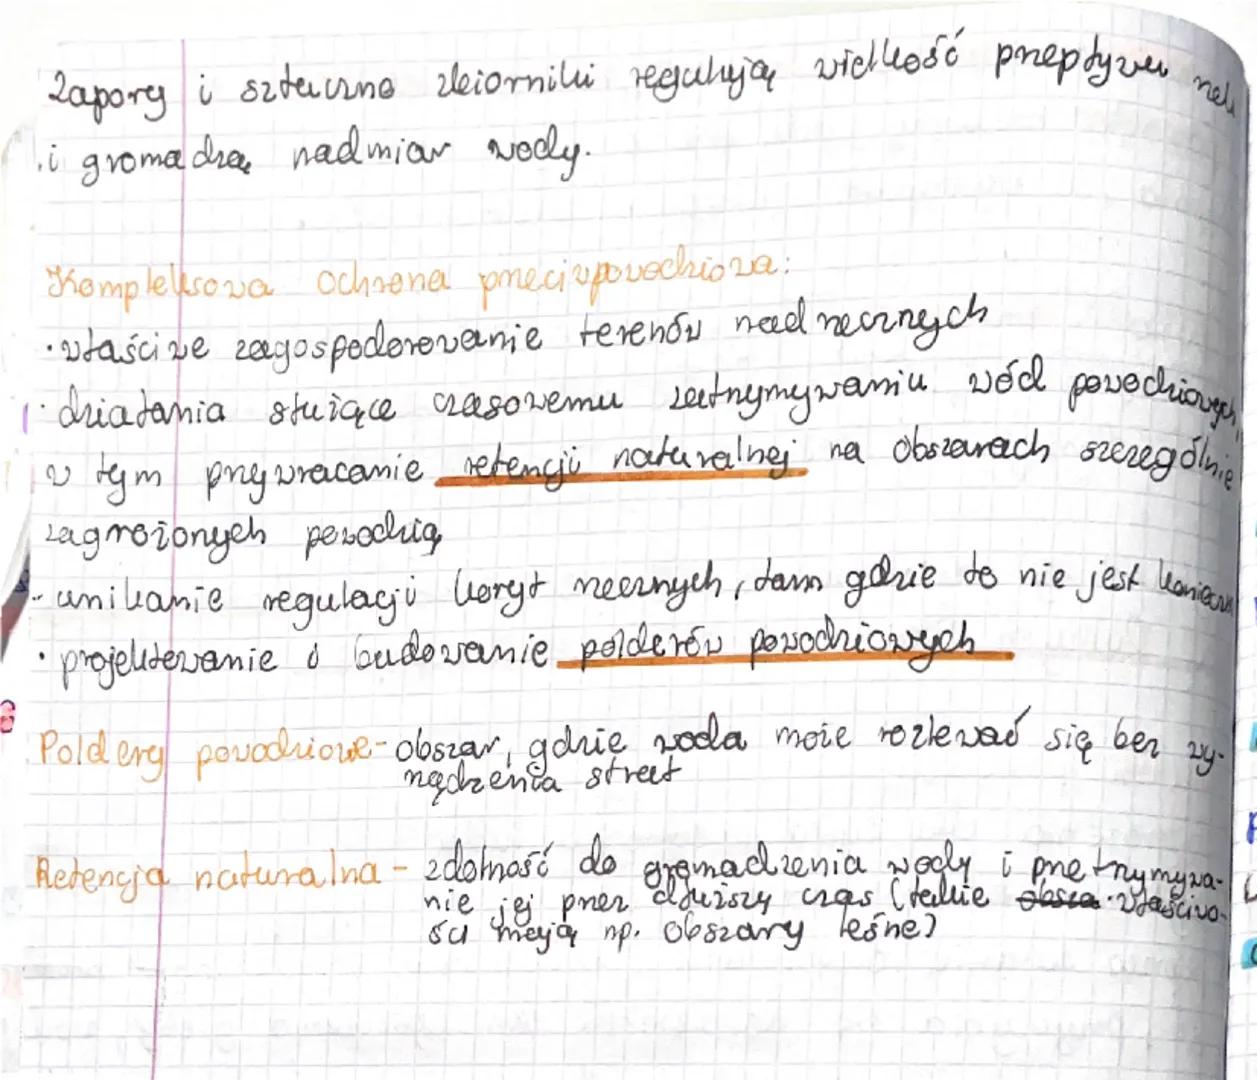 Zapory i sztuczne zbiorniki regulują wielkość przepływu
i gromadzą nadmiar wody.
Kompleksowa ochrona przeciwpowodziowa:
• właściwe zagospodarowanie terenów nadrzecznych
• działania służące czasowemu zatrzymywaniu wód powodziowych,
w tym przywracanie retencji naturalnej na obszarach szczególnie
zagrożonych powodzią
- unikanie regulacji koryt rzecznych, tam gdzie to nie jest
• projektowanie i budowanie polderów powodziowych
Poldery powodziowe - obszar, gdzie woda może rozlewać się bez wy-
rządzenia strat
Retencja naturalna - zdolność do gromadzenia wody i przetrzymywa-
nie jej przez dłuższy czas (takie właściwo-
ści mają np. obszary leśne)